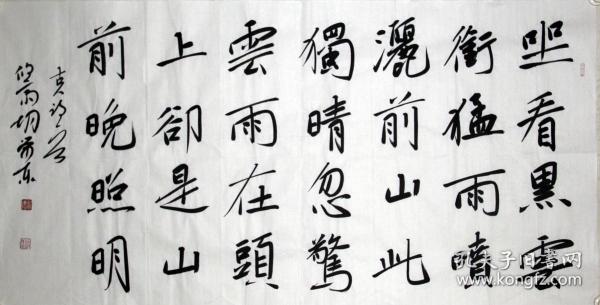 坐看黑雲
銜猛雨噴
灑前山此
獨晴忽驚
雲雨在頭
上卻是山
前晚照明
孔夫子旧书网
www.kongfz.com